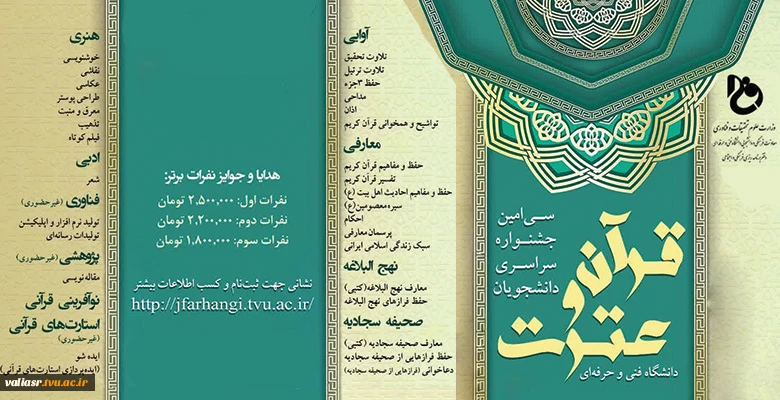 قرآن
و
عترت
سی‌امین
جشنواره
سراسری
دانشجویان
دانشگاه فنی و حرفه‌ای
وزارت علوم تحقیقات و فناوری
آوایی
تلاوت تحقیق
تلاوت ترتیل
حفظ ۳جزء
مداحی
اذان
تواشیح و همخوانی قرآن کریم
معارفی
حفظ و مفاهیم قرآن کریم
تفسیر قرآن کریم
حفظ و مفاهیم احادیث اهل بیت (ع)
سیره معصومین(ع)
احکام
پرسمان معارفی
سبک زندگی اسلامی ایرانی
نهج البلاغه
معارف نهج البلاغه(کتبی)
حفظ فرازهای نهج البلاغه
صحیفه سجادیه
معارف صحیفه سجادیه (کتبی)
حفظ فرازهایی از صحیفه سجادیه
دعاخوانی (فرازهایی از صحیفه سجادیه)
هدایا و جوایز نفرات برتر:
نفرات اول: ۲,۵۰۰,۰۰۰ تومان
نفرات دوم: ۲,۲۰۰,۰۰۰ تومان
نفرات سوم: ۱,۸۰۰,۰۰۰ تومان
نشانی جهت ثبت‌نام و کسب اطلاعات بیشتر
http://jfarhangi.tvu.ac.ir/
هنری
خوشنویسی
نقاشی
عکاسی
طراحی پوستر
معرق و منبت
تذهیب
فیلم کوتاه
ادبی
شعر
فناوری (غیرحضوری)
تولید نرم افزار و اپلیکیشن
تولیدات رسانه‌ای
پژوهشی (غیرحضوری)
مقاله نویسی
نوآفرینی قرآنی
استارت‌های قرآنی
(غیرحضوری)
ایده شو
(ایده‌پردازی استارت‌های قرآنی)
valiasr.tvu.ac.ir